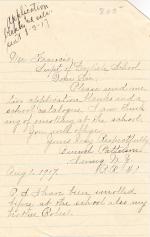 Application
Blanks
sent 8-3-17
Mr. Francis,
Supt of Carlisle School
Dear Sir,
Please send me
two application blanks and a
school catalogue. I am think
ing of enrolling at the school.
You will oblige
Yours very Respectfully
Patterson
N.Y.
Aug 1, 1917. R.F.D.
P.S I have been enrolled
before at the school also my
brother